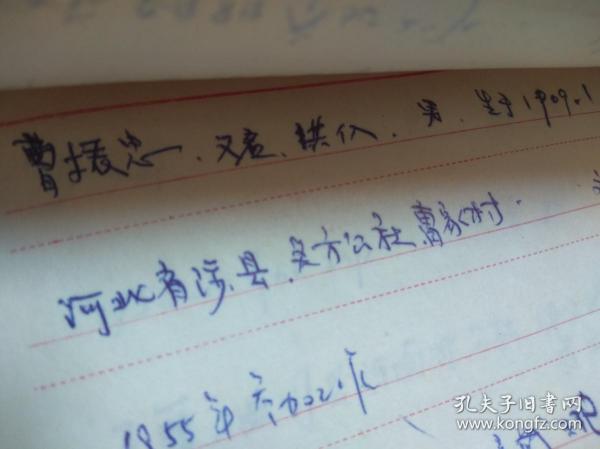 曹振忠、又名、洪仁、男、生于1909.1
河北省涉县、文方公社曹家村.
1955年参加工作
孔夫子旧书网
www.kongfz.com